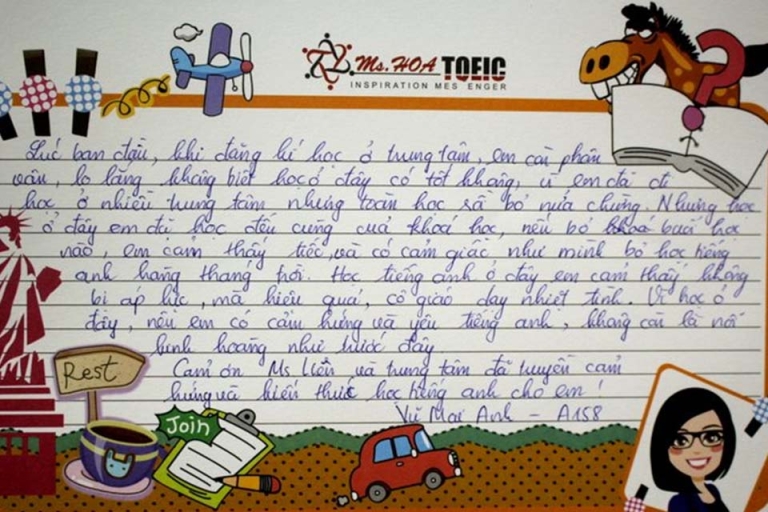 Ms. HOA TOEIC
INSPIRATION MES ENGER
Lúc ban đầu, khi đăng kí học ở trung tâm, em còn phân
vân, lo lắng không biết học ở đây có tốt không, vì em đã đi
học ở nhiều trung tâm nhưng toàn học rồi bỏ nửa chừng. Nhưng học
ở đây em đã học đến cùng của khoá học, nếu bỏ buổi học
nào, em cảm thấy tiếc, và có cảm giác như mình bỏ học tiếng
anh hàng tháng trời. Học tiếng anh ở đây em cảm thấy không
bị áp lực, mà hiệu quả, cô giáo dạy nhiệt tình. Vì học ở
đây, nên em có cảm hứng và yêu tiếng anh, không còn là nỗi
kinh hoàng như trước đây
Cảm ơn Ms Liên và trung tâm đã truyền cảm
hứng và kiến thức học tiếng anh cho em!
Vũ Mai Anh - A158
Rest
Join